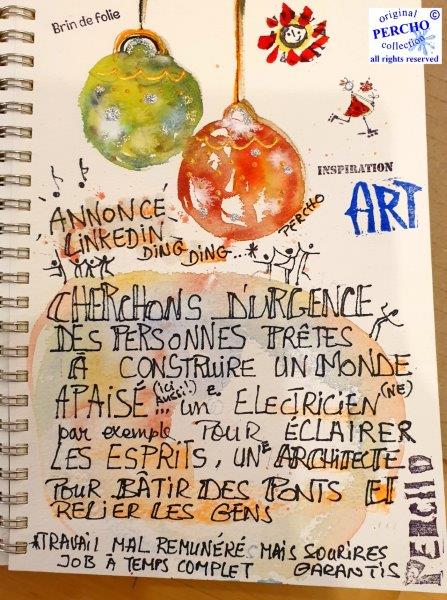 Brin de folie
original
PERCHO
©
collection
all rights reserved
INSPIRATION
ART
ANNONCE
LINKEDIN
DING DING...*
PERCHO
CHERCHONS D'URGENCE
DES PERSONNES PRÊTES
À CONSTRUIRE UN MONDE
APAISÉ (ici aussi!) ... un E ELECTRICIEN (NE)
par exemple POUR ÉCLAIRER
LES ESPRITS, UN E ARCHITECTE
POUR BÂTIR DES PONTS ET
RELIER LES GENS
*TRAVAIL MAL REMUNÉRÉ MAIS SOURIRES
JOB À TEMPS COMPLET GARANTIS
PERCHO